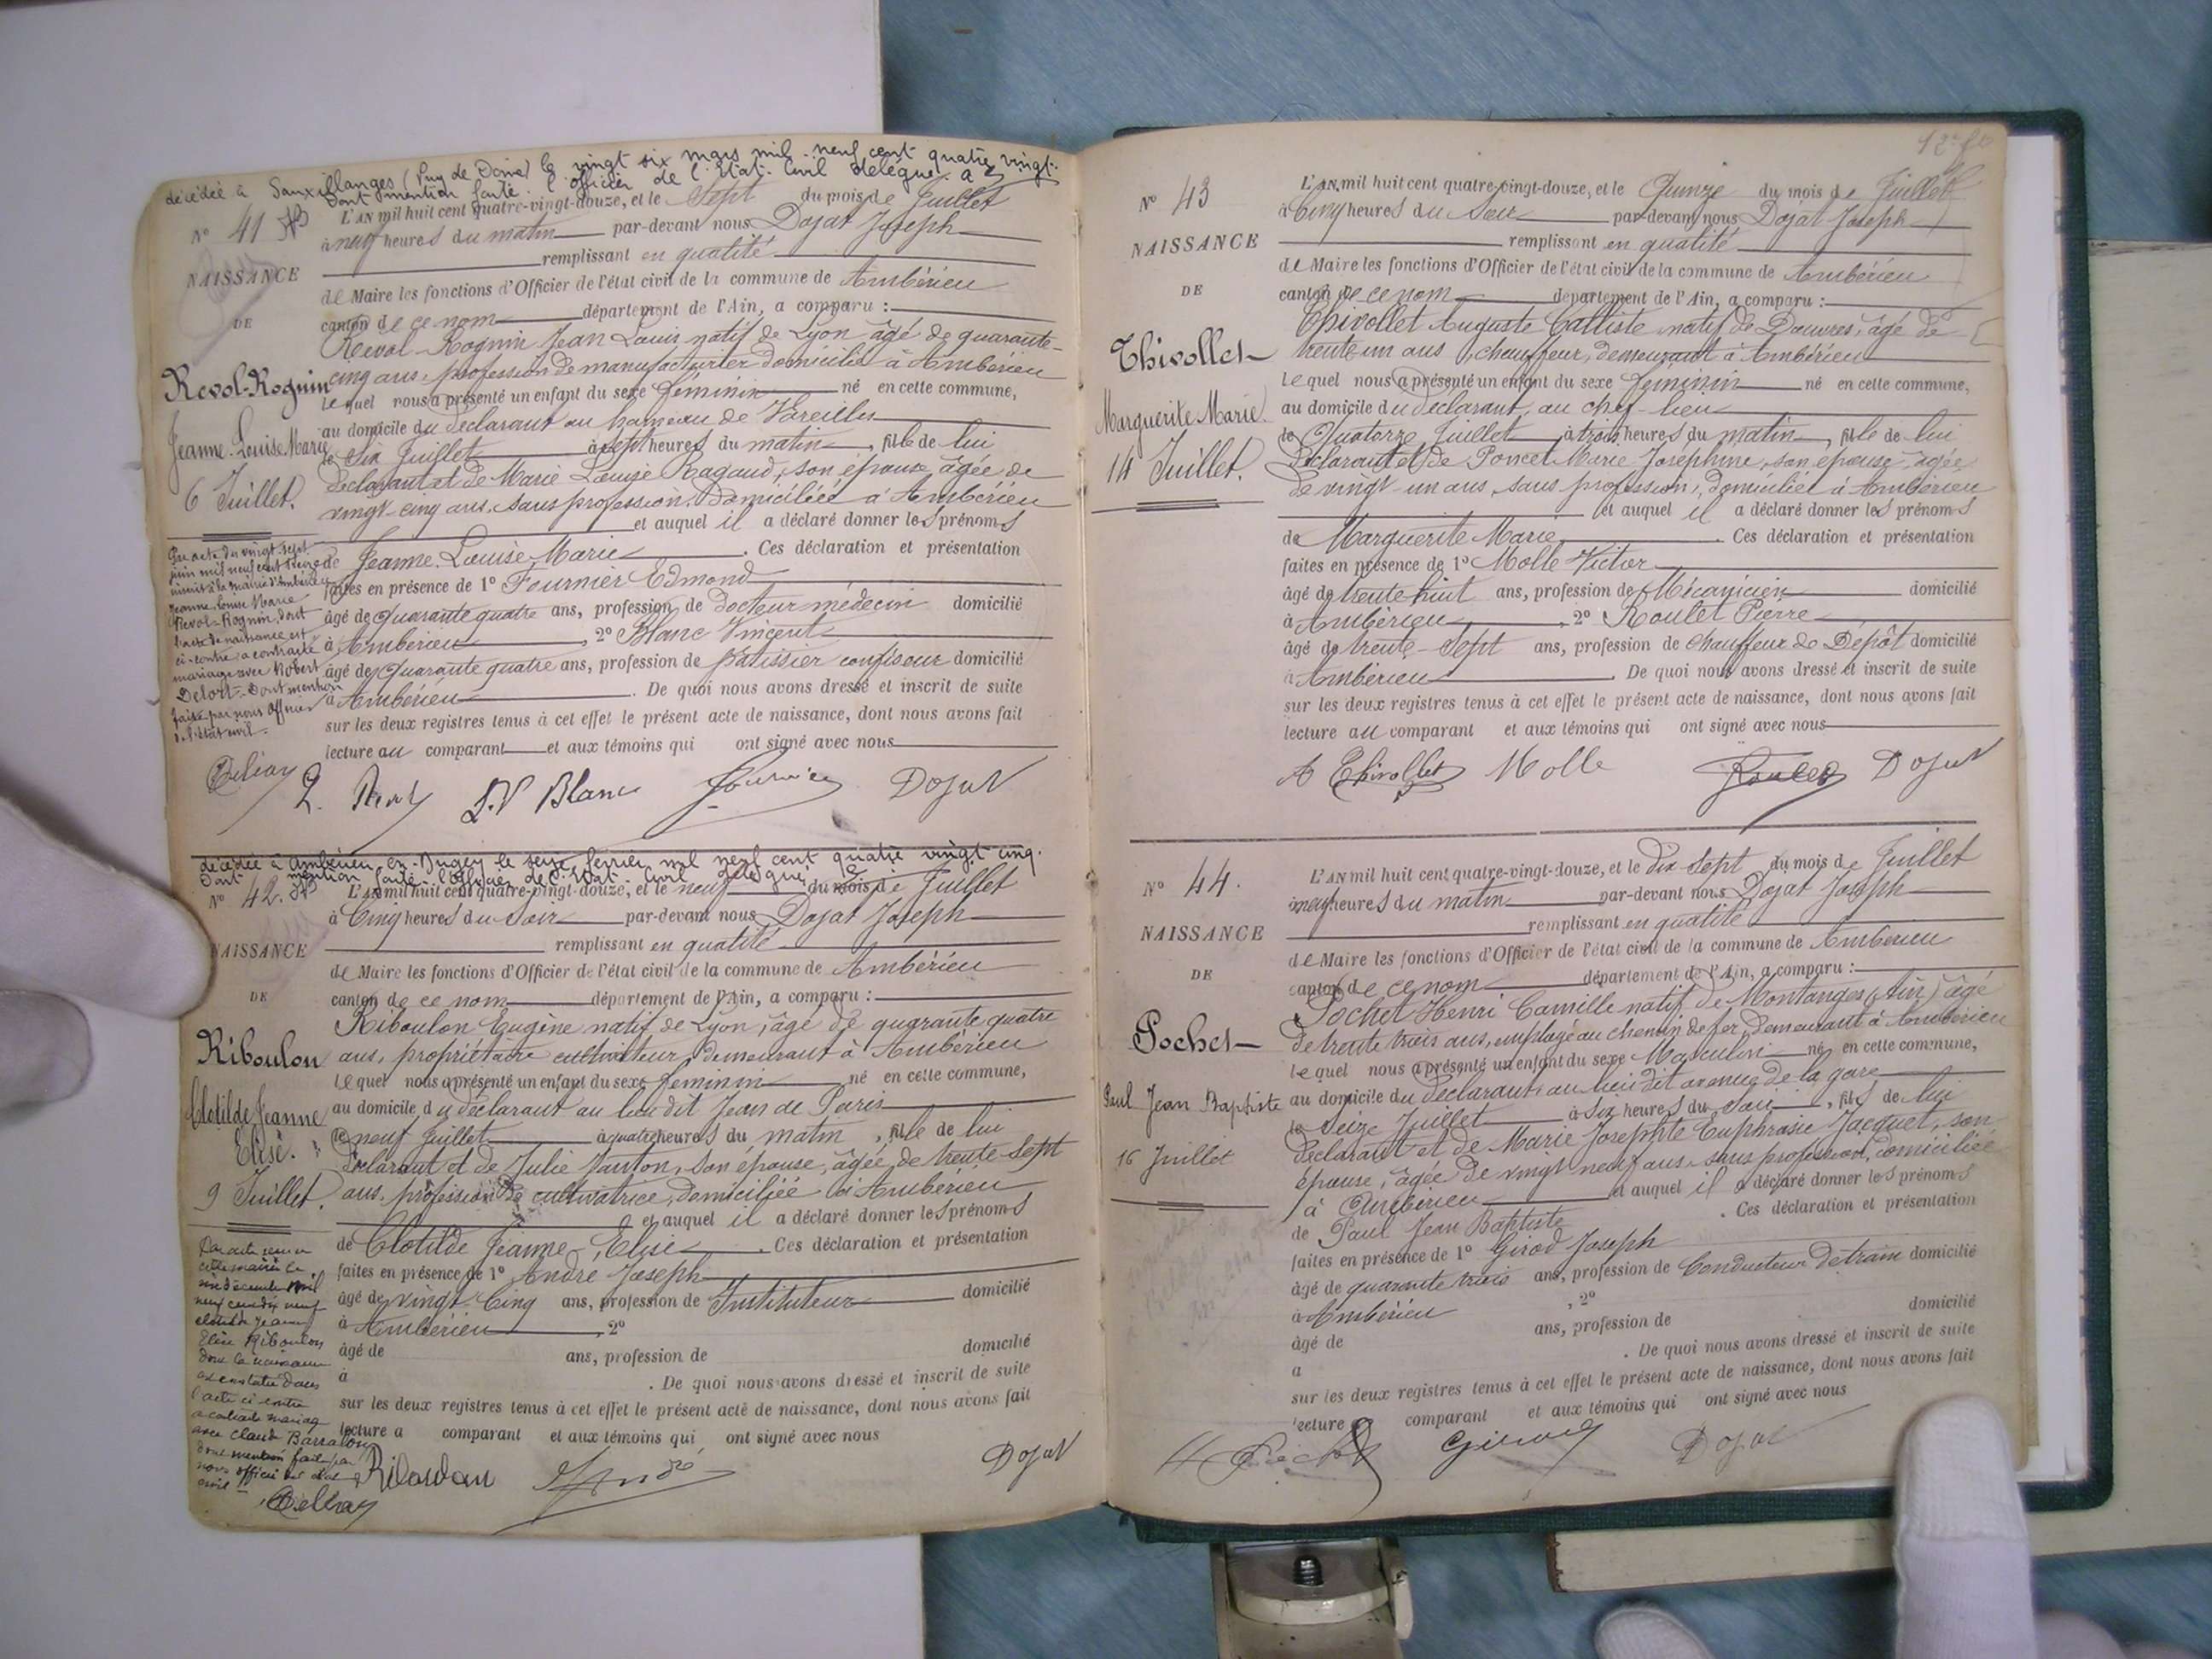 décédée à Sauxillanges (Puy de Dôme) le vingt six mars mil neuf cent quatre vingt.
Dont mention faite. L'officier de l'Etat. Civil délégué.
N° 41
L'AN mil huit cent quatre-vingt-douze, et le Sept du mois de Juillet
à neuf heures du matin par-devant nous Dojat Joseph
remplissant en qualité
NAISSANCE
de Maire les fonctions d'Officier de l'état civil de la commune de Ambérieu
DE
canton de ce nom département de l'Ain, a comparu :
Revol-Rognin Jean Louis natif de Lyon âgé de quarante-
cinq ans, profession de manufacturier domicilié à Ambérieu
Revol-Rognin
lequel nous a présenté un enfant du sexe féminin né en cette commune,
au domicile du déclarant au hameau de Vareilles
Jeanne. Louise. Marie
le Six Juillet à sept heures du matin, fille de lui
déclarant et de Marie Louise Ragaud, son épouse, âgée de
6 Juillet.
vingt-cinq ans, sans profession, domiciliée à Ambérieu
et auquel il a déclaré donner les prénoms
de Jeanne. Louise. Marie. Ces déclaration et présentation
faites en présence de 1° Fournier Edmond
âgé de Quarante quatre ans, profession de docteur médecin domicilié
à Ambérieu, 2° Blanc Vincent
âgé de Quarante quatre ans, profession de Patissier confiseur domicilié
à Ambérieu. De quoi nous avons dressé et inscrit de suite
sur les deux registres tenus à cet effet le présent acte de naissance, dont nous avons fait
lecture au comparant et aux témoins qui ont signé avec nous
Par acte du vingt-sept
juin mil neuf cent treize
inscrit à la mairie d'Ambérieu
Jeanne. Louise Marie
Revol-Rognin, dont
l'acte de naissance est
ci-contre a contracté
mariage avec Robert
Delort. Dont mention
faite par nous Officier
de l'état civil.
Blanc Dojat
décédée à Ambérieu-en-Bugey le seize février mil neuf cent quatre vingt cinq.
Dont mention faite. L'Officier de l'Etat. Civil délégué
N° 42.
L'AN mil huit cent quatre-vingt-douze, et le neuf du mois de Juillet
à Cinq heures du Soir par-devant nous Dojat Joseph
NAISSANCE
remplissant en qualité
de Maire les fonctions d'Officier de l'état civil de la commune de Ambérieu
DE
canton de ce nom département de l'Ain, a comparu :
Riboulon Eugène natif de Lyon, âgé de quarante quatre
Riboulon
ans, propriétaire cultivateur, demeurant à Ambérieu
lequel nous a présenté un enfant du sexe féminin né en cette commune,
Clotilde Jeanne
au domicile du déclarant au lieu dit Jean de Paris
le neuf Juillet à quatre heures du matin, fille de lui
Elise.
déclarant et de Julie Janton, son épouse, âgée de trente-sept
9 Juillet.
ans, profession de cultivatrice, domiciliée à Ambérieu
et auquel il a déclaré donner les prénoms
de Clotilde Jeanne, Elise. Ces déclaration et présentation
faites en présence de 1° André Joseph
âgé de vingt-Cinq ans, profession de Instituteur domicilié
à Ambérieu, 2°
âgé de ans, profession de domicilié
à . De quoi nous avons dressé et inscrit de suite
sur les deux registres tenus à cet effet le présent acte de naissance, dont nous avons fait
lecture a comparant et aux témoins qui ont signé avec nous
cette mairie le
décembre mil
neuf cent dix neuf
Clotilde Jeanne
Elise Riboulon
dont la naissance
est constatée dans
l'acte ci-contre
a contracté mariage
avec Claude Barralon
dont mention faite par
nous officier de l'état
civil
Riboulon André Dojat
N° 43
L'AN mil huit cent quatre-vingt-douze, et le Quinze du mois de Juillet
à Cinq heures du Soir par-devant nous Dojat Joseph
NAISSANCE
remplissant en qualité
de Maire les fonctions d'Officier de l'état civil de la commune de Ambérieu
DE
canton de ce nom département de l'Ain, a comparu :
Thivollet Auguste Calliste natif de Douvres, âgé de
Thivollet
trente-un ans, chauffeur, demeurant à Ambérieu
lequel nous a présenté un enfant du sexe féminin né en cette commune,
Marguerite Marie.
au domicile du déclarant, au chef-lieu
le Quatorze Juillet à trois heures du matin, fille de lui
14 Juillet.
déclarant et de Poncet Marie Joséphine, son épouse, âgée
de vingt-un ans, sans profession, domiciliée à Ambérieu
et auquel il a déclaré donner les prénoms
de Marguerite Marie. Ces déclaration et présentation
faites en présence de 1° Molle Victor
âgé de trente-huit ans, profession de Mécanicien domicilié
à Ambérieu, 2° Roulet Pierre
âgé de trente-Sept ans, profession de Chauffeur de Dépôt domicilié
à Ambérieu. De quoi nous avons dressé et inscrit de suite
sur les deux registres tenus à cet effet le présent acte de naissance, dont nous avons fait
lecture au comparant et aux témoins qui ont signé avec nous
A Thivollet Molle Roulet Dojat
N° 44.
L'AN mil huit cent quatre-vingt-douze, et le dix sept du mois de Juillet
à neuf heures du matin par-devant nous Dojat Joseph
NAISSANCE
remplissant en qualité
de Maire les fonctions d'Officier de l'état civil de la commune de Ambérieu
DE
canton de ce nom département de l'Ain, a comparu :
Pochet Henri Camille natif de Montanges (Ain) âgé
Pochet
de trente trois ans, employé au chemin de fer, demeurant à Ambérieu
lequel nous a présenté un enfant du sexe Masculin né en cette commune,
Paul Jean Baptiste
au domicile du déclarant au lieu dit avenue de la gare
le Seize Juillet à Six heures du Soir, fils de lui
16 Juillet
déclarant et de Marie Josephte Euphrasie Jacquet, son
épouse, âgée de vingt neuf ans, sans profession, domiciliée
à Ambérieu et auquel il a déclaré donner les prénoms
de Paul Jean Baptiste . Ces déclaration et présentation
faites en présence de 1° Girod Joseph
âgé de quarante trois ans, profession de Conducteur de train domicilié
à Ambérieu , 2°
âgé de ans, profession de domicilié
a . De quoi nous avons dressé et inscrit de suite
sur les deux registres tenus à cet effet le présent acte de naissance, dont nous avons fait
lecture comparant et aux témoins qui ont signé avec nous
H Pochet Girod Dojat